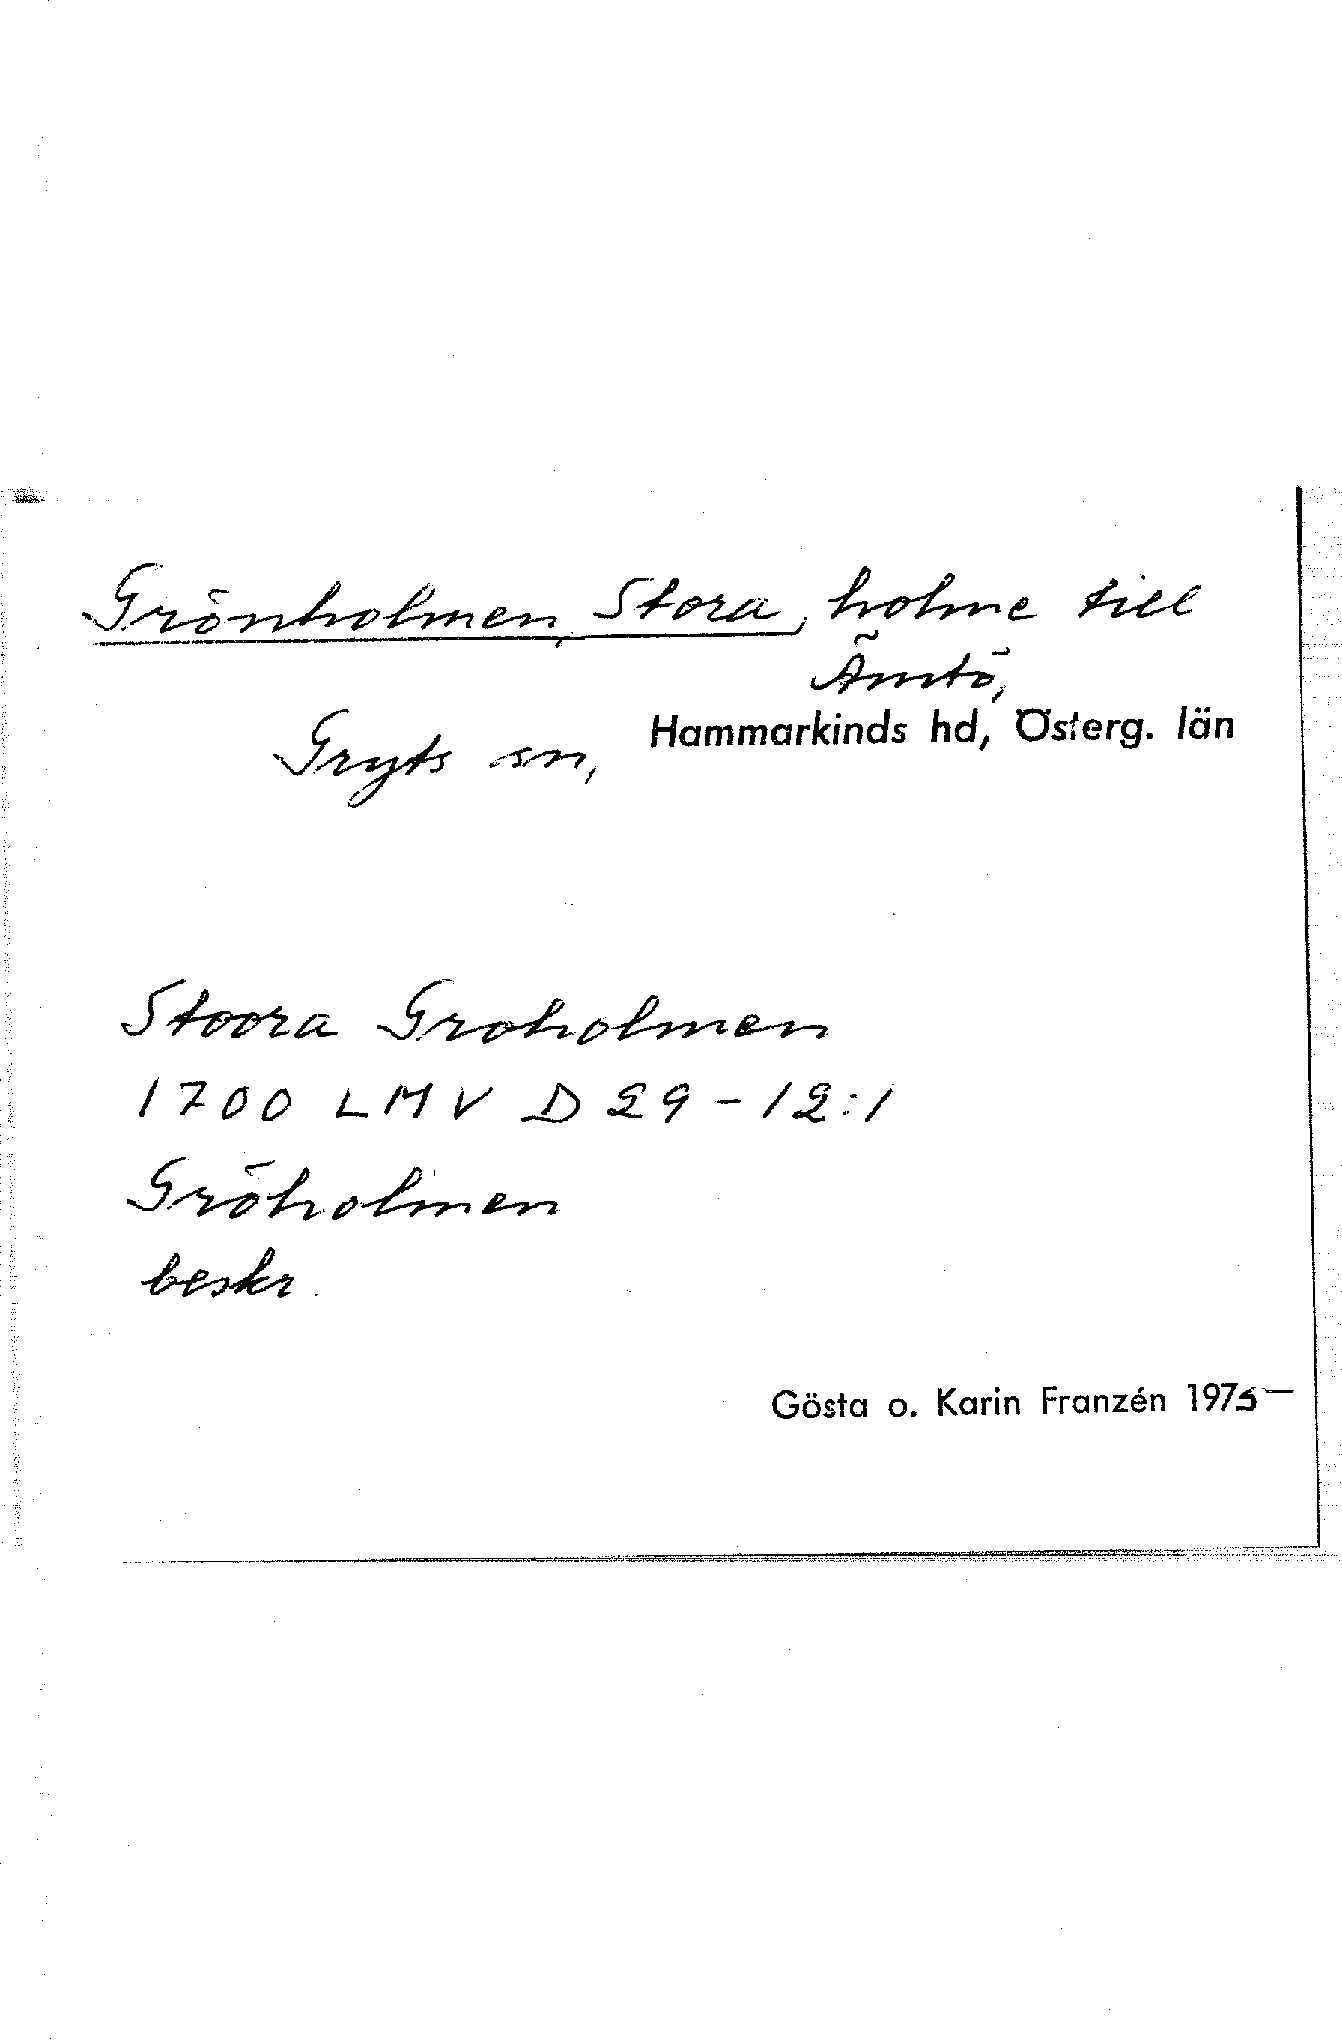 Grönholmen, Stora, holme till
Ämtö,
Gryts sn, Hammarkinds hd, Österg. län
Stoora Groholmen
1700 LMV D 29-12:1
Gröholmen
beskr.
Gösta o. Karin Franzén 1975